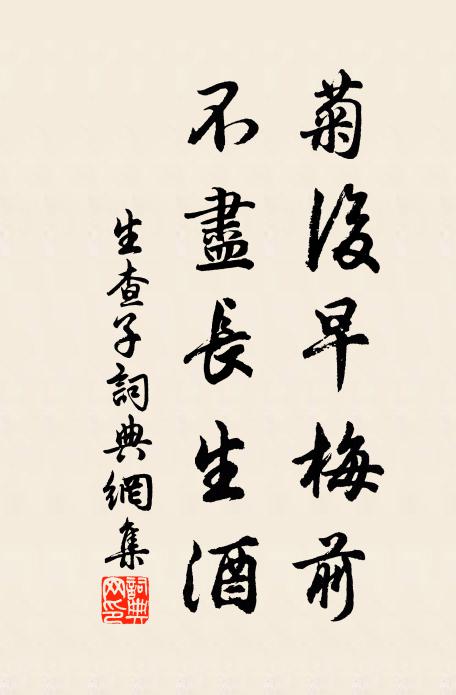 菊後早梅前
不盡長生酒
生查子詞典網集
詞典網印